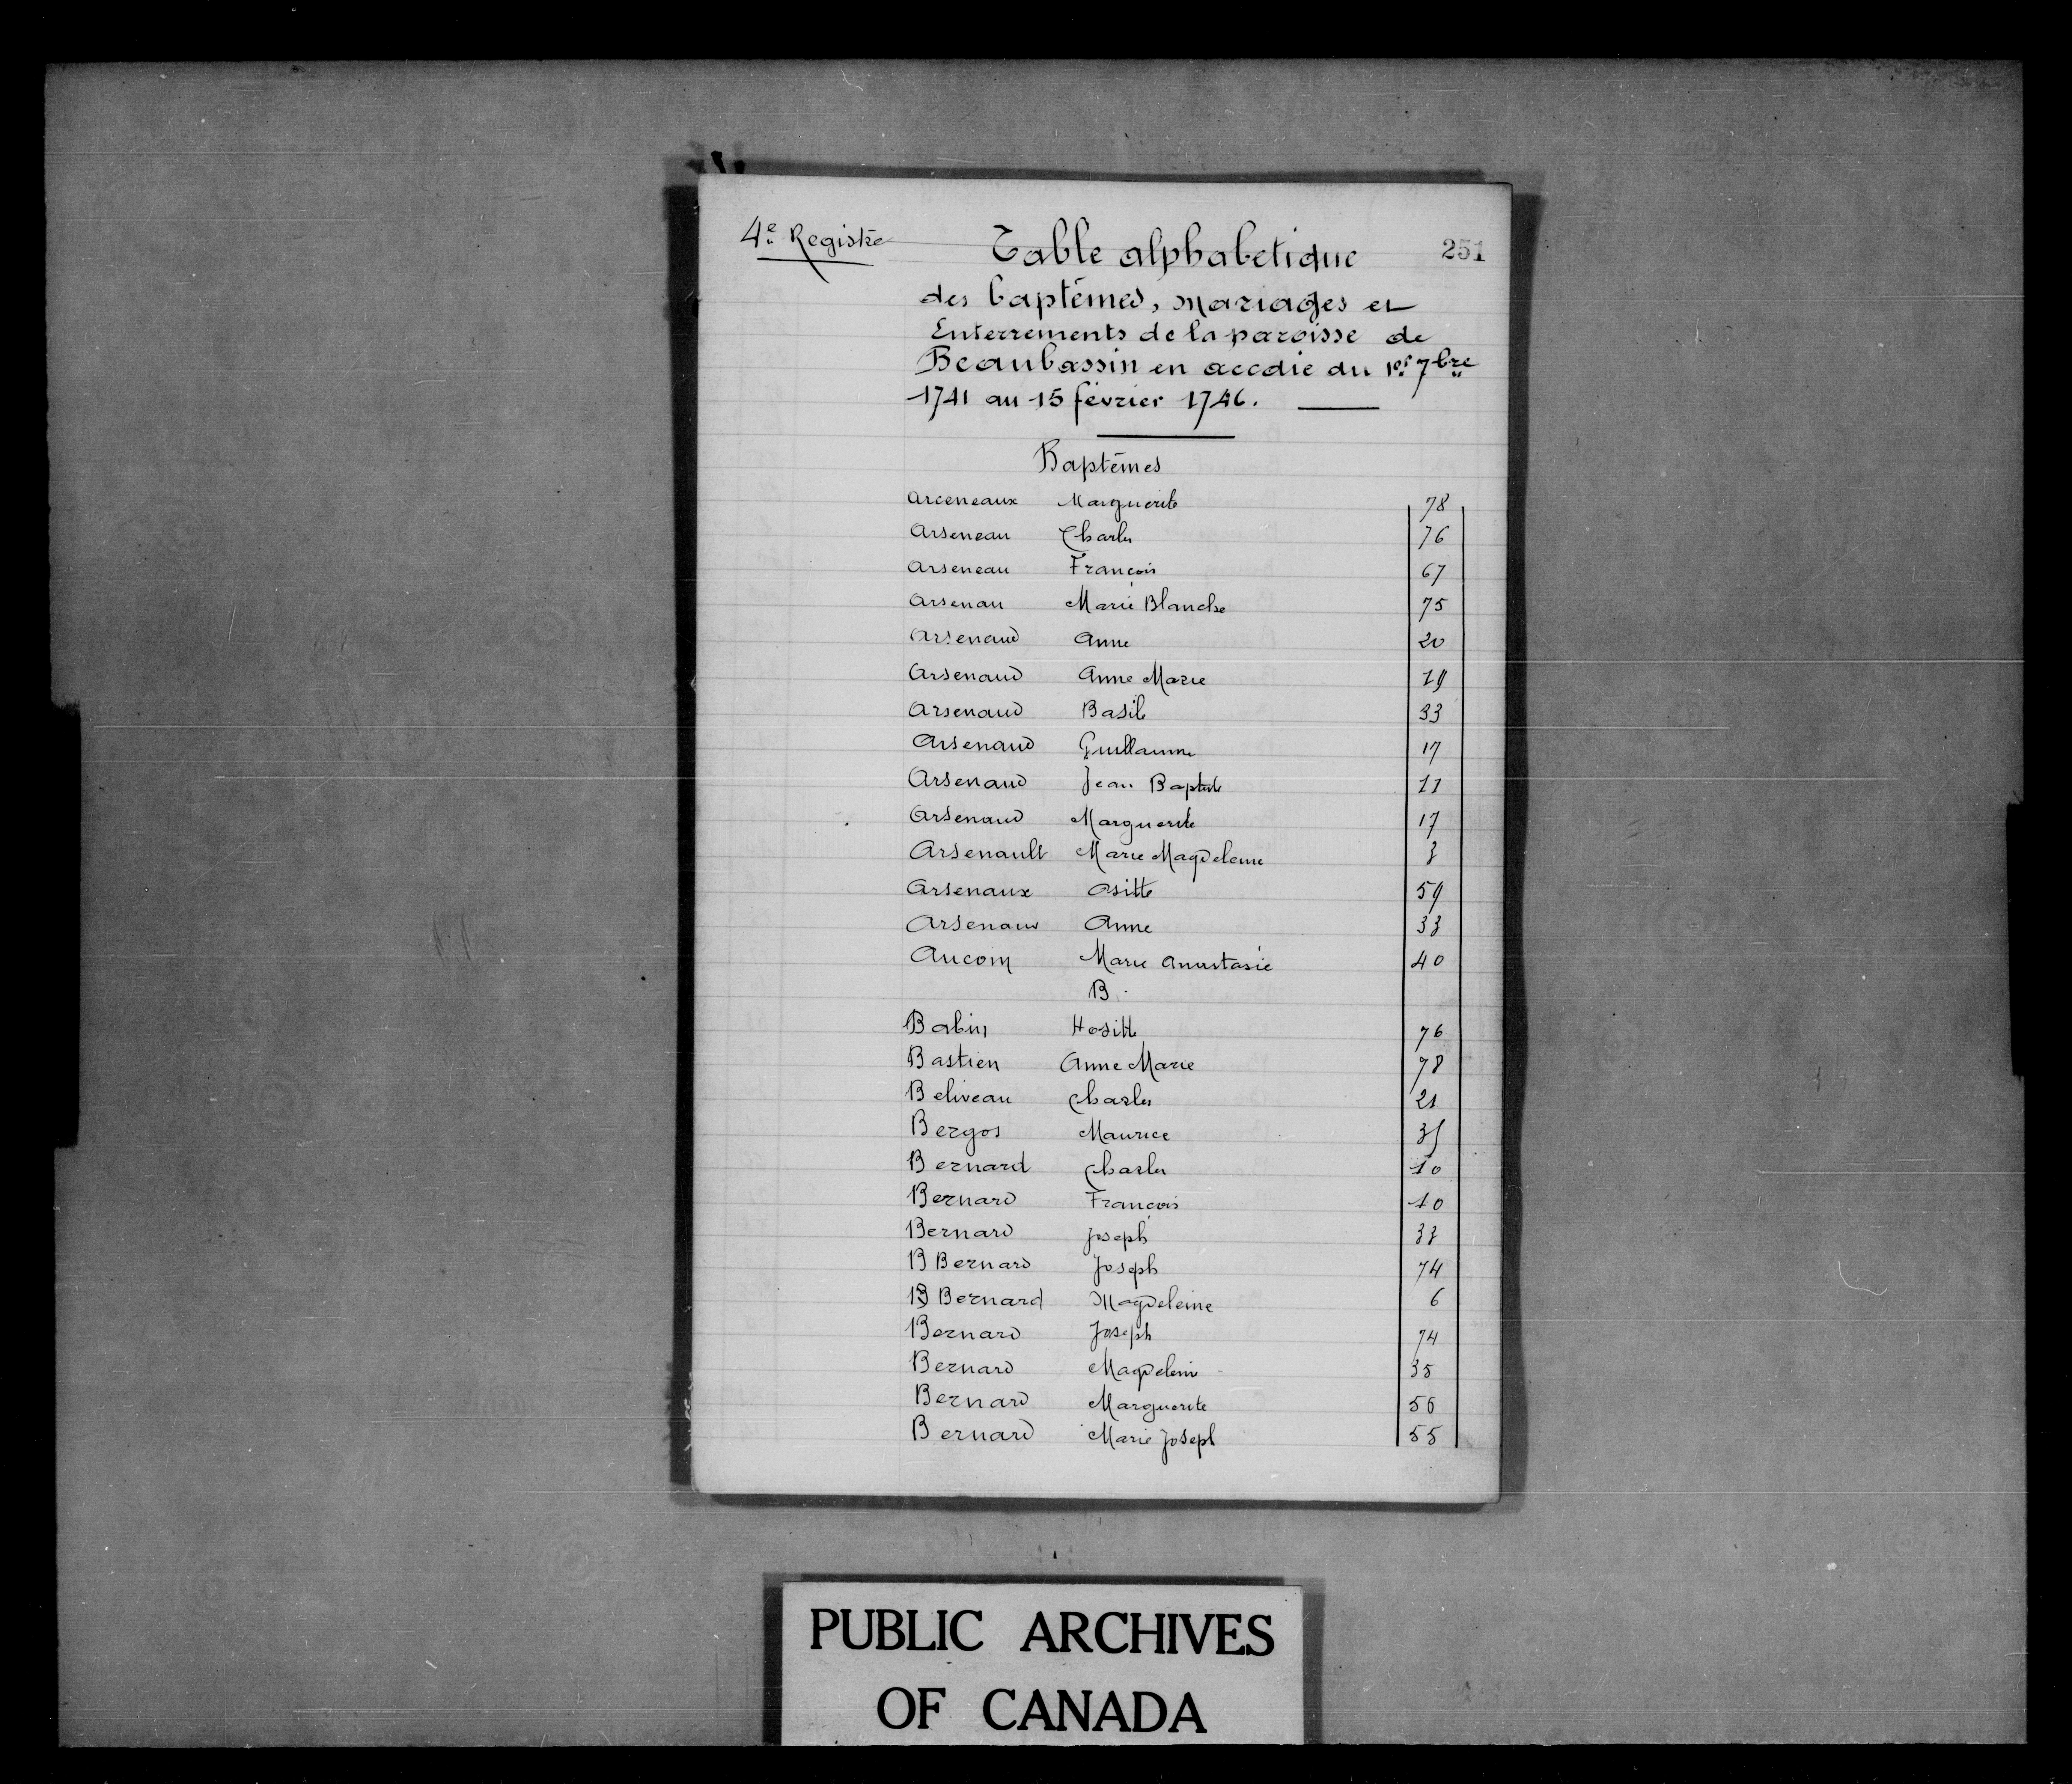 4e Registre
Table alphabetique 251
des baptêmes, mariages et
Enterrements de la paroisse de
Beaubassin en accadie du 1er 7bre
1741 au 15 février 1746.
Baptêmes
Arceneaux Marguerite 78
Arseneau Charles 76
Arseneau François 67
Arsenau Marie Blanche 75
Arsenaud Anne 20
Arsenaud Anne Marie 19
Arsenaud Basile 33
Arsenaud Guillaume 17
Arsenaud Jean Baptiste 11
Arsenaud Marguerite 17
Arsenault Marie Magdeleine 3
Arsenaux Ositte 59
Arsenaux Anne 33
Aucoin Marie Anastasie 40
B.
Babin Hositte 76
Bastien Anne Marie 78
Beliveau Charles 21
Bergos Maurice 35
Bernard Charles 10
Bernard François 10
Bernard Joseph 33
B Bernard Joseph 74
B Bernard Magdeleine 6
Bernard Joseph 74
Bernard Magdelein 35
Bernard Marguerite 56
Bernard Marie Joseph 55
PUBLIC ARCHIVES
OF CANADA